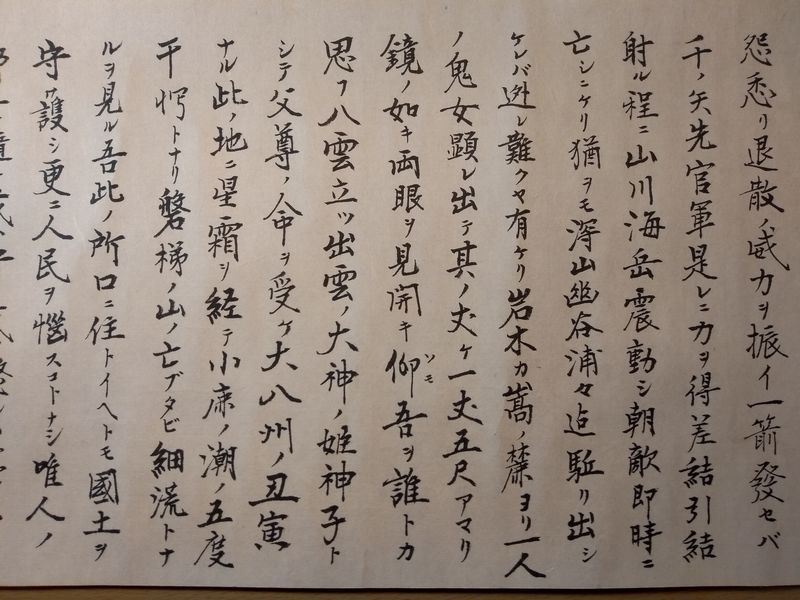 怨悉リ退散ノ威力ヲ振イ一箭發セバ
千ノ矢先官軍是レニ力ヲ得差結引結
射ル程ニ山川海岳震動シ朝敵即時ニ
亡シニケリ猶ヲモ深山幽谷浦々迠駈リ出シ
ケレバ迯レ難クヤ有ケリ岩木カ嵩ノ麓ヨリ一人
ノ鬼女顕レ出テ其ノ丈ケ一丈五尺アマリ
鏡ノ如キ両眼ヲ見開キ仰ソモ吾ヲ誰トカ
思フ八雲立ツ出雲ノ大神ノ姫神子ト
シテ父尊ノ命ヲ受ケ大八州ノ丑寅
ナル此ノ地ニ星霜シ経テ小床ノ潮ノ五度
干愕トナリ磐梯ノ山ノ亡ブタビ細流トナ
ルヲ見ル吾此ノ所口ニ住トイヘトモ國土ヲ
守サ護シ更ニ人民ヲ惱スコトナシ唯人ノ